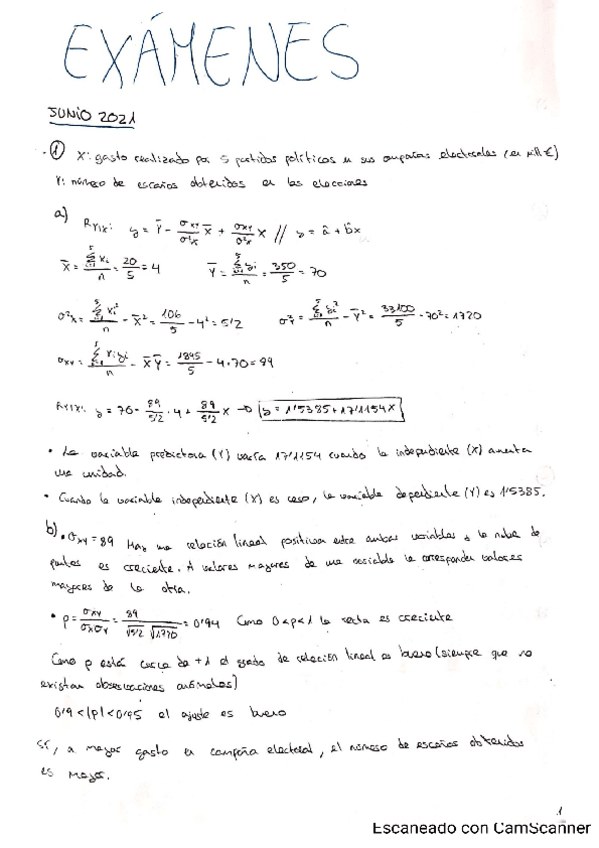 EXÁMENES
JUNIO 2021
① X: gasto realizado por 5 partidos políticos en sus campañas electorales (en mill €)
Y: número de escaños obtenidos en las elecciones
a) RY/X: y = Ȳ - σxy/σ²x X̄ + σxy/σ²x X // y = â + b̂x
X̄ = Σxi/n = 20/5 = 4 Ȳ = Σyi/n = 350/5 = 70
σ²x = Σxi²/n - X̄² = 106/5 - 4² = 5'2 σ²y = Σyi²/n - Ȳ² = 33100/5 - 70² = 1720
σxy = Σxiyi/n - X̄Ȳ = 1845/5 - 4·70 = 89
RY/X: y = 70 - 89/5'2 · 4 + 89/5'2 X → y = 1'5385 + 17'1154X
• La variable predictora (Y) varía 17'1154 cuando la independiente (X) aumenta
una unidad.
• Cuando la variable independiente (X) es cero, la variable dependiente (Y) es 1'5385.
b) • σxy = 89 Hay una relación lineal positiva entre ambas variables y la nube de
puntos es creciente. A valores mayores de una variable le corresponden valores
mayores de la otra.
• ρ = σxy/σxσy = 89/√5'2 √1720 = 0'94 Como 0<ρ<1 la recta es creciente
Como ρ está cerca de +1 el grado de relación lineal es bueno (siempre que no
existan observaciones anómalas)
0'9 < |ρ| < 0'95 el ajuste es bueno
Sí, a mayor gasto en campaña electoral, el número de escaños obtenidos
es mayor.
1
Escaneado con CamScanner